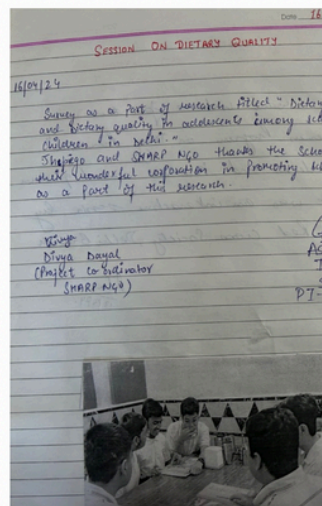 Date 16
SESSION ON DIETARY QUALITY
16/04/24
Survey as a part of research titled "Dietary
and Dietary quality in adolescents among sch
children in Delhi."
Jhpiego and SHARP NGO thanks the Scho
their wonderful corporation in promoting
as a part of this research.
Divya
Divya Dayal
(Project co-ordinator
SHARP NGO)